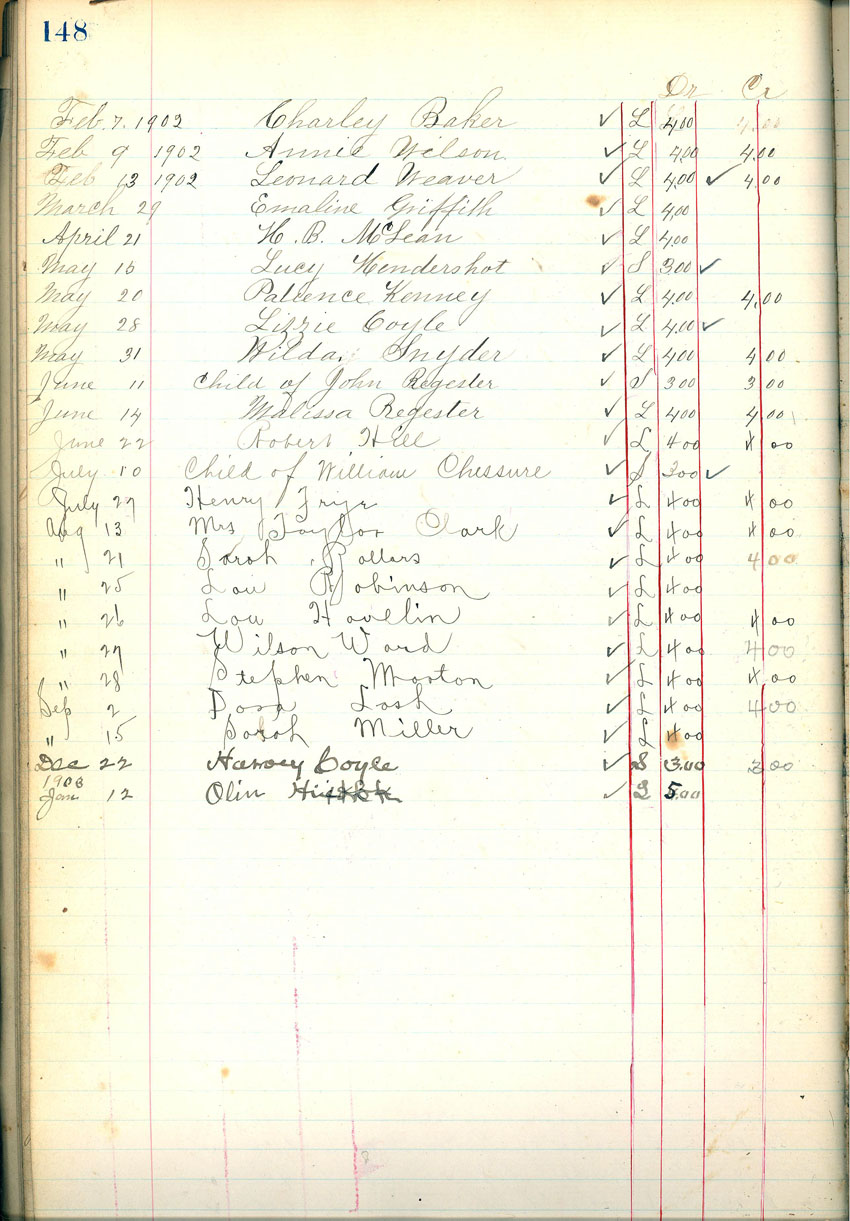 148
Dr Cr
Feb. 7. 1902 Charley Baker ✓ L 4.00 4.00
Feb 9 1902 Annie Wilson ✓ L 4.00 4.00
Feb 13 1902 Leonard Weaver ✓ L 4.00 ✓ 4.00
March 29 Emaline Griffith ✓ L 4.00
April 21 H. B. McLean ✓ L 4.00
May 16 Lucy Hendershot ✓ S 3.00 ✓
May 20 Patience Kenney ✓ L 4.00 4.00
May 28 Lizzie Coyle ✓ L 4.00 ✓
May 31 Wilda. Snyder ✓ L 4.00 4 00
June 11 Child of John Regester ✓ S 3 00 3 00
June 14 Malissa Regester ✓ L 4 00 4 00
June 22 Robert Hill ✓ L 4 00 4 00
July 10 Child of William Chessure ✓ S 3 00 ✓
July 27 Henry Frye ✓ L 4 00 4 00
Aug 13 Mrs Taylor Clark ✓ L 4 00 4 00
" 21 Sarah Pollars ✓ L 4 00 4 00
" 25 Lou Robinson ✓ L 4 00
" 26 Lou Havelin ✓ L 4 00 4 00
" 27 Wilson Ward ✓ L 4 00 4 00
" 28 Stephen Morton ✓ L 4 00 4 00
Sep 2 Dora Lash ✓ L 4 00 4 00
" 15 Sarah Miller ✓ L 4 00
Dec 22 Harvey Coyle ✓ S 3.00 3 00
1903
Jan 12 Olin ✓ L 5.00